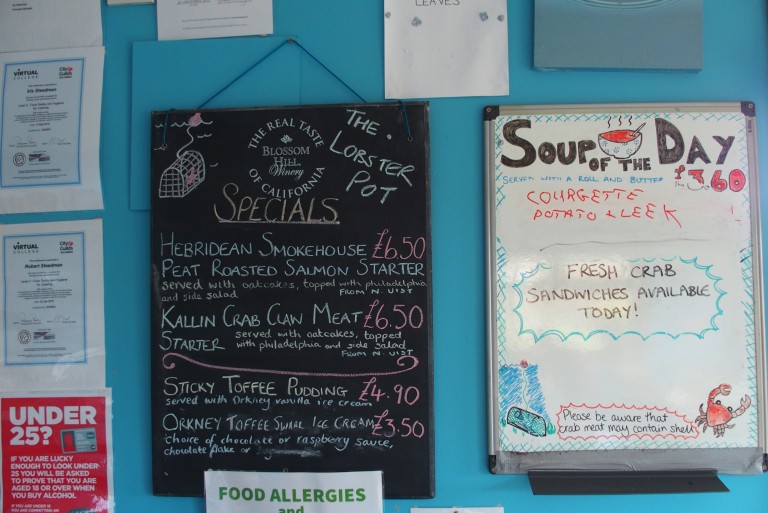 LEAVES
VIRTUAL
COLLEGE
City&
Guilds
VIRTUAL
COLLEGE
City&
Guilds
Robert Steedman
UNDER
25?
IF YOU ARE LUCKY
ENOUGH TO LOOK UNDER
25 YOU WILL BE ASKED
TO PROVE THAT YOU ARE
AGED 18 OR OVER WHEN
YOU BUY ALCOHOL
IF YOU ARE UNDER 18
YOU ARE COMMITTING AN
THE REAL TASTE
BLOSSOM
HILL
Winery
OF CALIFORNIA
THE
LOBSTER
POT
SPECIALS
HEBRIDEAN SMOKEHOUSE £6.50
PEAT ROASTED SALMON STARTER
served with oatcakes, topped with philadelphia
and side salad FROM N. UIST
KALLIN CRAB CLAW MEAT £6.50
STARTER served with oatcakes, topped
with philadelphia and side salad
FROM N. UIST
STICKY TOFFEE PUDDING £4.90
served with Orkney vanilla ice cream
ORKNEY TOFFEE SWIRL ICE CREAM £3.50
choice of chocolate or raspberry sauce,
chocolate flake or
FOOD ALLERGIES
and
SOUP OF THE DAY
SERVED WITH A ROLL AND BUTTER £3.60
COURGETTE
POTATO & LEEK
FRESH CRAB
SANDWICHES AVAILABLE
TODAY!
Please be aware that
crab meat may contain shell